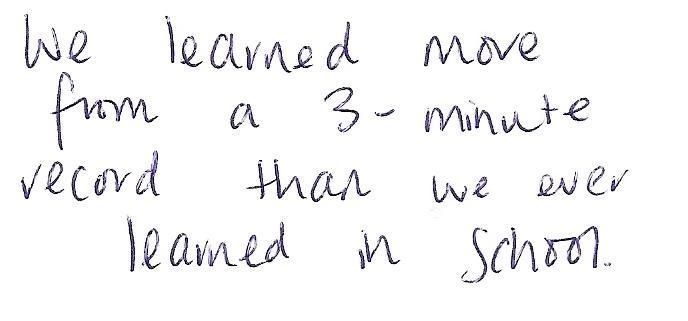 We learned more
from a 3-minute
record than we ever
learned in school.